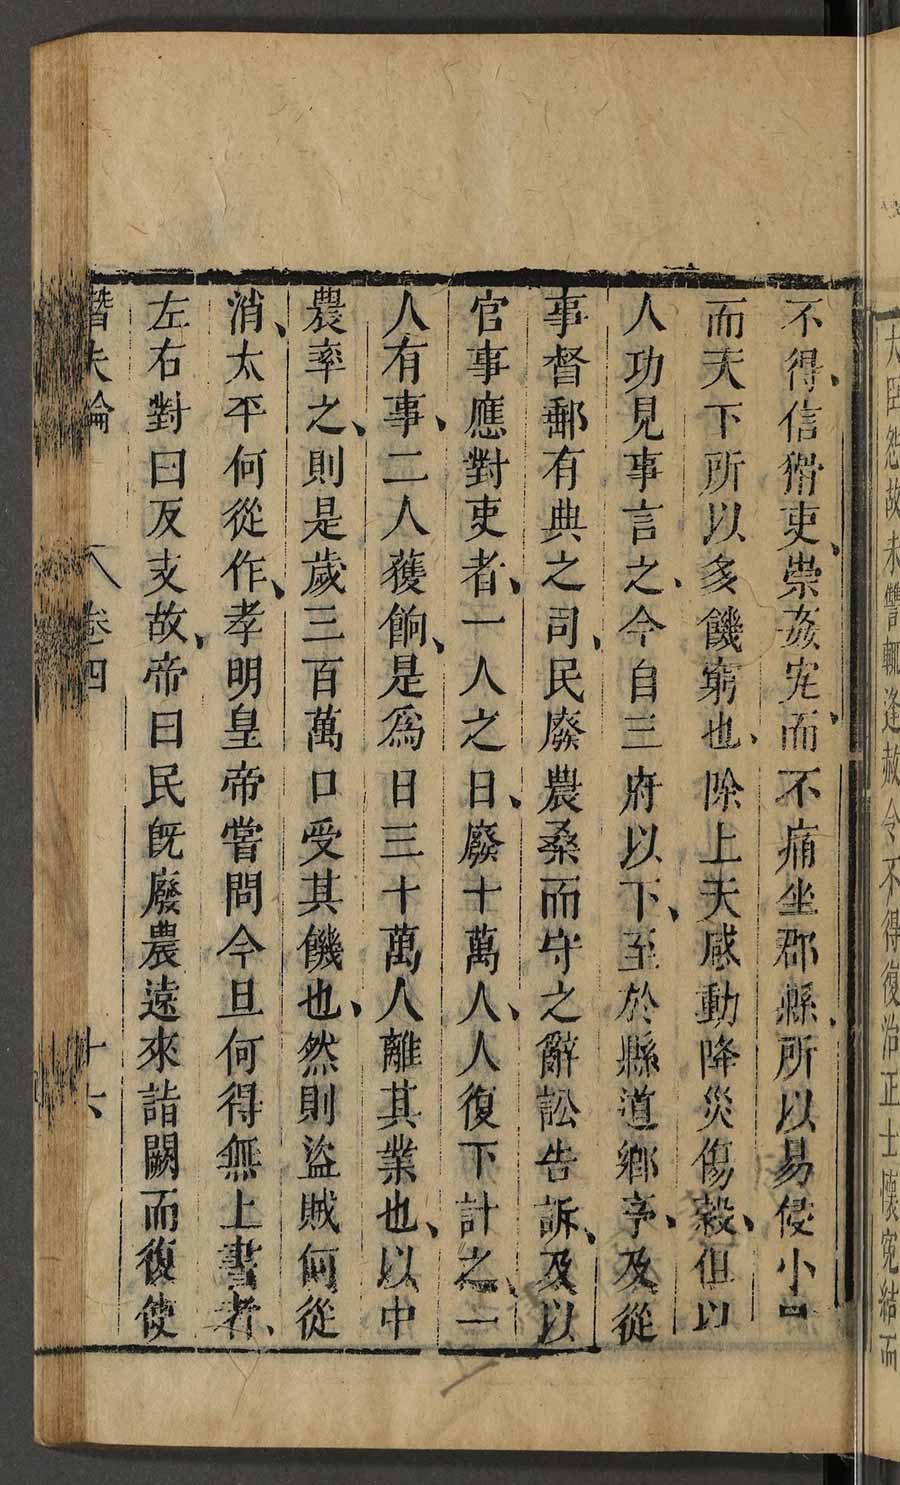 大臣怨故未讐輒逢赦令不得復治正士懷寃結而
不得信猾吏崇姦宄而不痛坐郡縣所以易侵小
而天下所以多饑窮也除上天感動降災傷穀但以
人功見事言之今自三府以下至於縣道鄉亭及從
事督郵有典之司民廢農桑而守之辭訟告訴及以
官事應對吏者一人之日廢十萬人人復下計之一
人有事二人獲餉是爲日三十萬人離其業也以中
農率之則是歲三百萬口受其饑也然則盜賊何從
消太平何從作孝明皇帝嘗問今旦何得無上書者
左右對曰反支故帝曰民旣廢農遠來詣闕而復使
潛夫論 卷四 十六